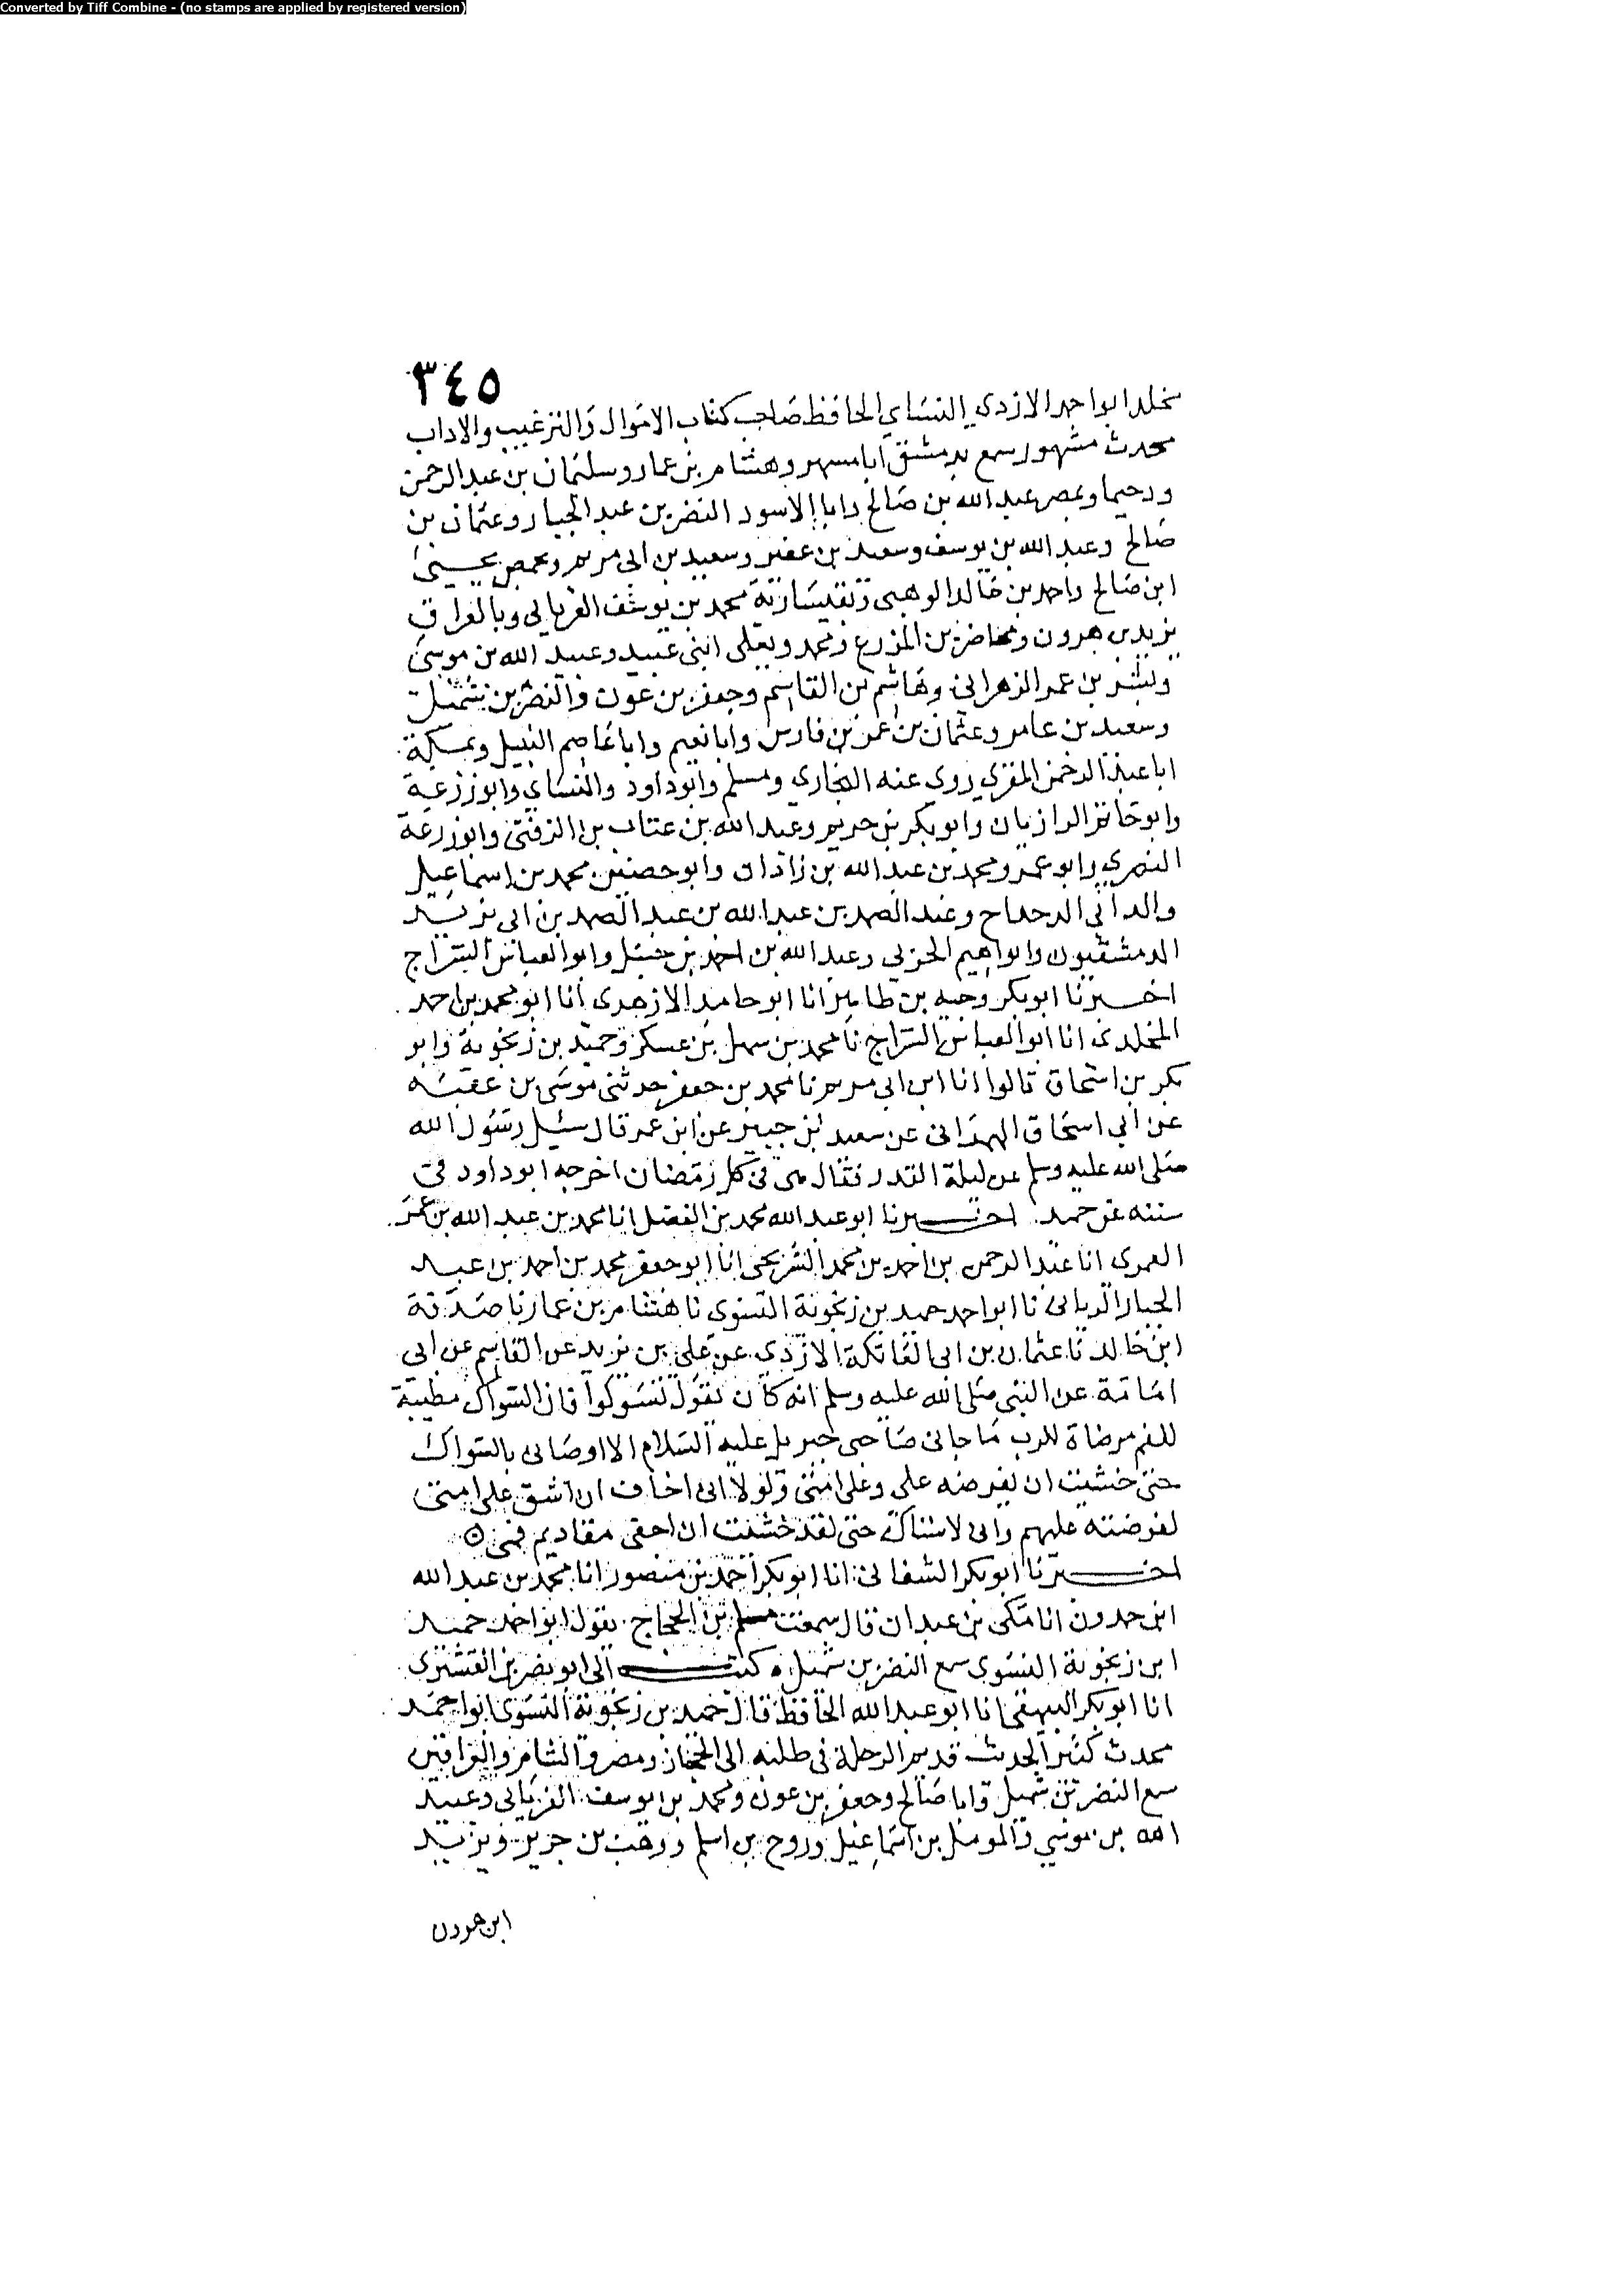 Converted by Tiff Combine - (no stamps are applied by registered version)
٣٤٥
مخلد ابو احمد الازدي النساي الحافظ صاحب كتاب الاموال والترغيب والاداب
محدث مشهور سمع بدمشق ابا مسهر وهشام بن عمار وسليمان بن عبد الرحمن
ودحيما وبمصر عبد الله بن صالح وابا الاسود النضر بن عبد الجبار وعثمان بن
صالح وعبد الله بن يوسف وسعيد بن عفير وسعيد بن ابي مريم وبحمص يحيى
ابن صالح واحمد بن خالد الوهبي وبقيسارية محمد بن يوسف الفريابي وبالعراق
يزيد بن هرون ومحاضر بن المورع ومحمد ويعلى ابني عبيد وعبيد الله بن موسى
وبشر بن عمر الزهراني وهاشم بن القاسم وجعفر بن عون والنضر بن شميل
وسعيد بن عامر وعثمان بن عمر بن فارس وابا نعيم وابا عاصم النبيل وبمكة
ابا عبد الرحمن المقري روى عنه البخاري ومسلم وابو داود والنساي وابو زرعة
وابو حاتم الرازيان وابو بكر بن خريم وعبد الله بن عتاب بن الزفتي وابو زرعة
النصري وابو عمرو محمد بن عبد الله بن زاذان وابو حصين محمد بن اسماعيل
وابو الدحداح وعبد الصمد بن عبد الله بن عبد الصمد بن ابي يزيد
الدمشقيون وابراهيم الحربي وعبد الله بن احمد بن حنبل وابو العباس السراج
اخبرنا ابو بكر وجيه بن طاهر انا ابو حامد الازهري انا ابو محمد بن احمد
المخلدي انا ابو العباس السراج نا محمد بن سهل بن عسكر وحميد بن زنجوية وابو
بكر بن اسحاق قالوا انا ابن ابي مريم نا محمد بن جعفر حدثني موسى بن عقبه
عن ابي اسحاق الهمداني عن سعيد بن جبير عن ابن عمر قال سئيل رسول الله
صلى الله عليه وسلم عن ليلة القدر فقال هي في كل رمضان اخرجه ابو داود في
سننه عن حميد اخبرنا ابو عبد الله محمد بن الفضل انا محمد بن عبد الله بن عمر
العمري انا عبد الرحمن بن احمد بن محمد الشريحي انا ابو جعفر محمد بن احمد بن عبد
الجبار الرياني نا ابو احمد حميد بن زنجوية النسوي نا هشام بن عمار نا صدقة
ابن خالد نا عثمان بن ابي العاتكة الازدي عن علي بن يزيد عن القاسم عن ابي
امامة عن النبي صلى الله عليه وسلم انه كان يقول تسوكوا فان السواك مطيبة
للفم مرضاة للرب ما جاني صاحبي جبريل عليه السلام الا اوصاني بالسواك
حتى خشيت ان يفرضه علي وعلى امتي ولولا اني اخاف ان اشق على امتي
لفرضته عليهم واني لاستاك حتى لقد خشيت ان احفي مقاديم فمي ه
اخبرنا ابو بكر الشقاني انا ابو بكر احمد بن منصور انا محمد بن عبد الله
ابن حمدون انا مكي بن عبدان قال سمعت مسلم بن الحجاج يقول ابو احمد حميد
ابن زنجوية النسوي سمع النضر بن شميل ه كتب الى ابو نصر بن القشيري
انا ابو بكر البيهقي انا ابو عبد الله الحافظ قال حميد بن زنجوية النسوي ابو احمد
محدث كثير الحديث قديم الرحلة في طلبه الى الحجاز ومصر والشام والعراقين
سمع النضر بن شميل وابا صالح وجعفر بن عون ومحمد بن يوسف الفريابي وعبيد
الله بن موسى والمومل بن اسماعيل وروح بن اسلم ووهب بن جرير ويزيد
ابن هرون